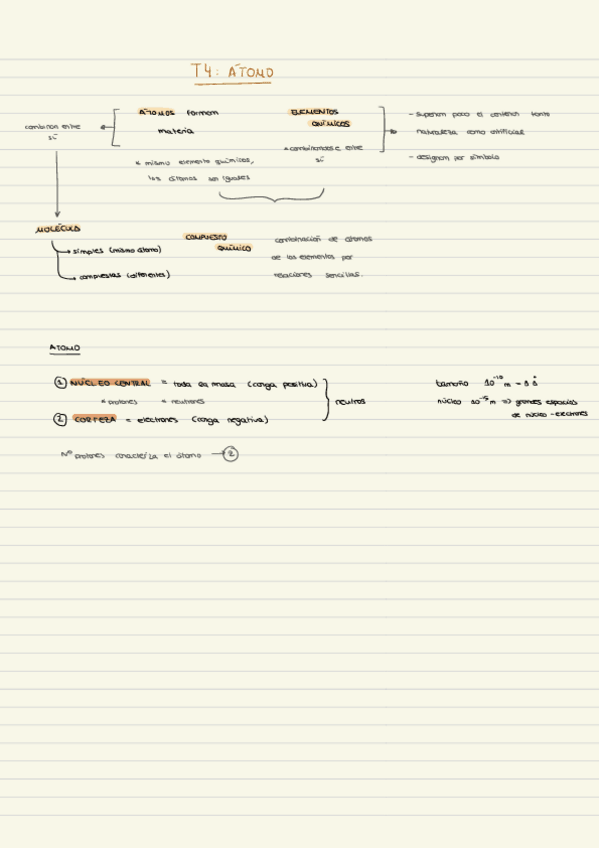 T4: ÁTOMO
combinan entre
sí
ÁTOMOS forman
materia
* mismo elemento químicos,
los átomos son iguales
ELEMENTOS
QUÍMICOS
* combinandose entre
sí
- superan poco el centenar tanto
naturaleza como artificial
- designan por símbolo
MOLÉCULA
simples (mismo átomo)
compuestas (diferentes)
COMPUESTO
QUÍMICO
combinación de átomos
de los elementos por
relaciones sencillas.
ATOMO
① NÚCLEO CENTRAL = toda la masa (carga positiva)
* protones * neutrones
② CORTEZA = electrones (carga negativa)
neutros
tamaño 10⁻¹⁰ m = 1 Å
núcleo 10⁻¹⁵ m => grandes espacios
de núcleo - electrones
Nº protones caracteriza el átomo → ②